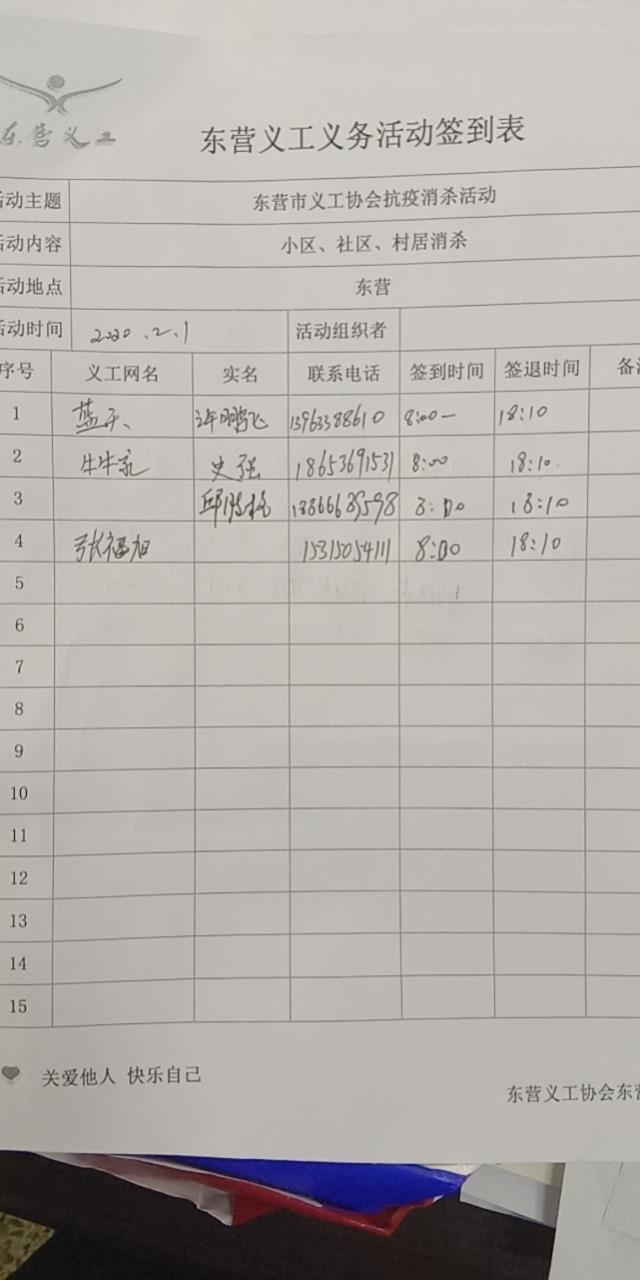 东营义工
东营义工义务活动签到表
活动主题 东营市义工协会抗疫消杀活动
活动内容 小区、社区、村居消杀
活动地点 东营
活动时间 2020.2.1 活动组织者
序号 义工网名 实名 联系电话 签到时间 签退时间 备
1 蓝天 许鹏飞 13963388610 8:00— 18:10
2 牛牛 史强 18653691531 8:00 18:10.
3 邱 13866689598 8:00 18:10
4 张福旭 15315054111 8:00 18:10
5
6
7
8
9
10
11
12
13
14
15
关爱他人 快乐自己
东营义工协会东营